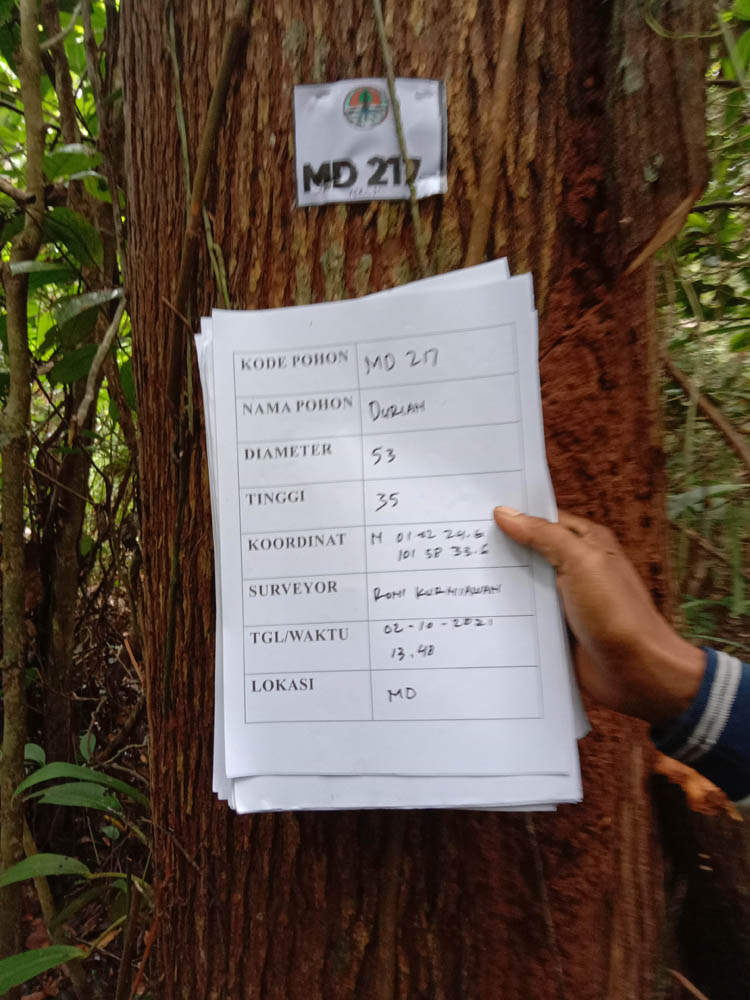 MD 217
KODE POHON MD 217
NAMA POHON DURIAN
DIAMETER 53
TINGGI 35
KOORDINAT N 01 02 29.6
101 58 33.6
SURVEYOR RONI KURNIAWAN
TGL/WAKTU 02-10-2021
13.48
LOKASI MD